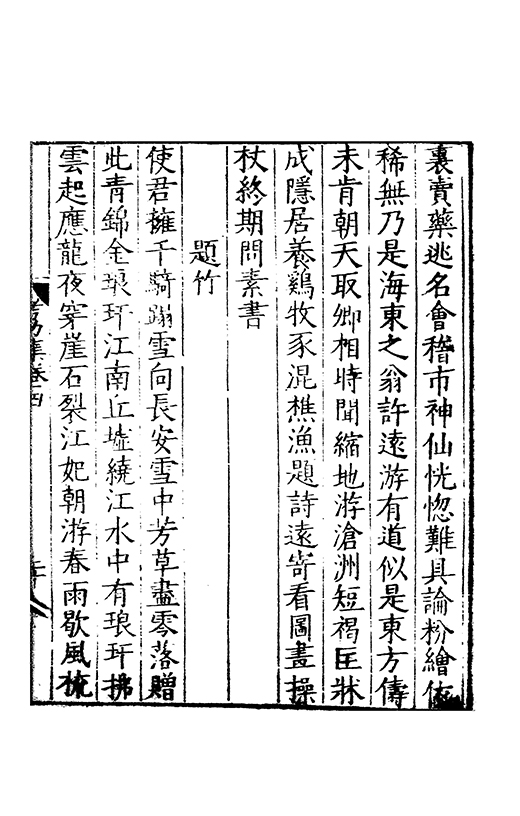 裏賣藥逃名會稽市神仙恍惚難具論粉繪依
稀無乃是海東之翁許遠游有道似是東方儔
未肯朝天取卿相時聞縮地游滄洲短褐匡牀
成隱居養鷄牧豕混樵漁題詩遠寄看圖畫操
杖終期問素書
題竹
使君擁千騎蹋雪向長安雪中芳草盡零落贈
此青錦金琅玕江南丘墟繞江水中有琅玕拂
雲起應龍夜穿崖石裂江妃朝游春雨歇風梳
集卷四